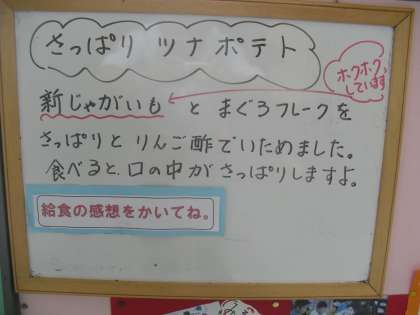 さっぱり ツナポテト
ホクホク
しています
新じゃがいも と まぐろフレークを
さっぱりと りんご酢でいためました。
食べると、口の中がさっぱりしますよ。
給食の感想をかいてね。